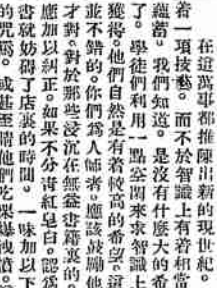 在這萬事都推陳出新的現世紀。
着一項技藝。而不於智識上有着相當
蘊蓄。我們知道。是沒有什麼大的希
了。學徒們利用一點空閑來求智識上
獲得。他們自然是有着較高的希望。這
並不錯的。你們爲人師者。應該鼓勵他
才對。對於那些浸沉在無益書籍裏的。
應加以糾正。如果不分靑紅皂白。認爲
書就妨碍了店裏的時間。一味加以下
的咒駡。或甚至請他們吃栗爆洩憤。